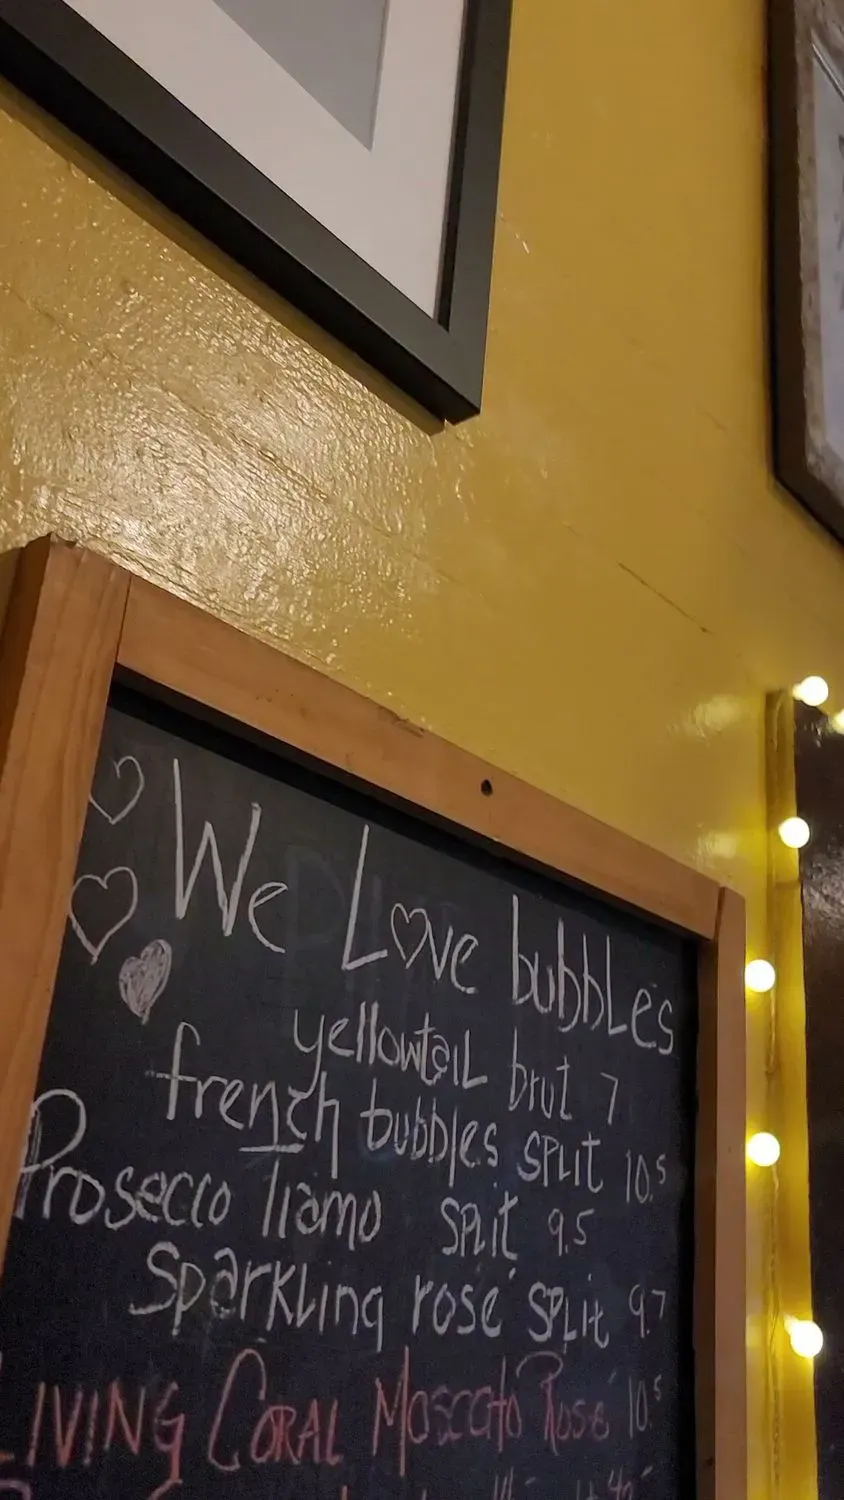 We Love bubbLes
yellowtaiL brut 7
french bubbles SPLit 10.5
Prosecco Tiamo split 9.5
Sparkling rosé SPLit 9.7
LIVING CORAL Moscato Rosé 10.5